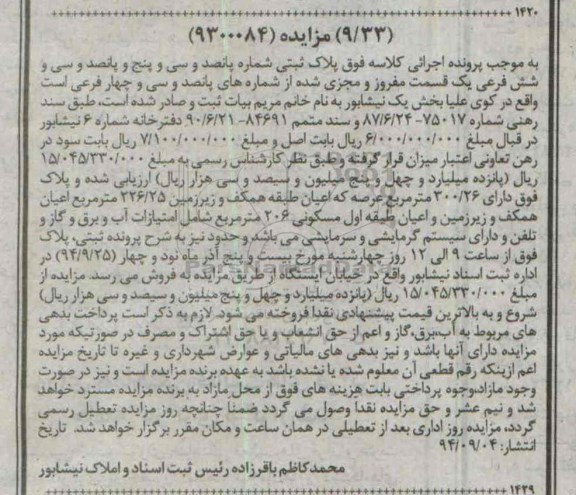 ۱۴۲۰
(۹/۳۳) مزایده (۹۳۰۰۰۸۴)
به موجب پرونده اجرائی کلاسه فوق پلاک ثبتی شماره پانصد و سی و پنج و پانصد و سی و
شش فرعی یک قسمت مفروز و مجزی شده از شماره های پانصد و سی و چهار فرعی است
واقع در کوی علیا بخش یک نیشابور به نام خانم مریم بیات ثبت و صادر شده است، طبق سند
رهنی شماره ۷۵۰۱۷-۸۷/۶/۲۴ و سند متمم ۸۴۶۹۱-۹۰/۶/۲۱ دفترخانه شماره ۶ نیشابور
در قبال مبلغ ۶/۰۰۰/۰۰۰/۰۰۰ ریال بابت اصل و مبلغ ۷/۱۰۰/۰۰۰/۰۰۰ ریال بابت سود در
رهن تعاونی اعتبار میزان قرار گرفته و طبق نظر کارشناس رسمی به مبلغ ۱۵/۰۴۵/۳۳۰/۰۰۰
ریال (پانزده میلیارد و چهل و پنج میلیون و سیصد و سی هزار ریال) ارزیابی شده و پلاک
فوق دارای ۳۰۰/۲۶ مترمربع عرصه که اعیان طبقه همکف و زیرزمین ۲۲۶/۲۵ مترمربع اعیان
همکف و زیرزمین و اعیان طبقه اول مسکونی ۲۰۶ مترمربع شامل امتیازات آب و برق و گاز و
تلفن و دارای سیستم گرمایشی و سرمایشی می باشد و حدود نیز به شرح پرونده ثبتی، پلاک
فوق از ساعت ۹ الی ۱۲ روز چهارشنبه مورخ بیست و پنج آذر ماه نود و چهار (۹۴/۹/۲۵) در
اداره ثبت اسناد نیشابور واقع در خیابان ایستگاه از طریق مزایده به فروش می رسد. مزایده از
مبلغ ۱۵/۰۴۵/۳۳۰/۰۰۰ ریال (پانزده میلیارد و چهل و پنج میلیون و سیصد و سی هزار ریال)
شروع و به بالاترین قیمت پیشنهادی نقدا فروخته می شود. لازم به ذکر است پرداخت بدهی
های مربوط به آب،برق،گاز و اعم از حق انشعاب و یا حق اشتراک و مصرف در صورتیکه مورد
مزایده دارای آنها باشد و نیز بدهی های مالیاتی و عوارض شهرداری و غیره تا تاریخ مزایده
اعم ازینکه رقم قطعی آن معلوم شده یا نشده باشد به عهده برنده مزایده است و نیز در صورت
وجود مازاد،وجوه پرداختی بابت هزینه های فوق از محل مازاد به برنده مزایده مسترد خواهد
شد و نیم عشر و حق مزایده نقدا وصول می گردد ضمنا چنانچه روز مزایده تعطیل رسمی
گردد، مزایده روز اداری بعد از تعطیلی در همان ساعت و مکان مقرر برگزار خواهد شد. تاریخ
انتشار: ۹۴/۰۹/۰۴
محمدکاظم باقرزاده رئیس ثبت اسناد و املاک نیشابور
۱۴۳۹